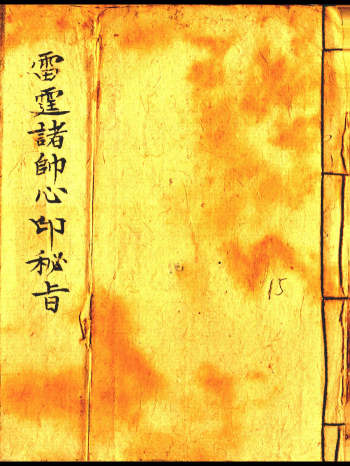 雷霆諸帥心印秘旨
15